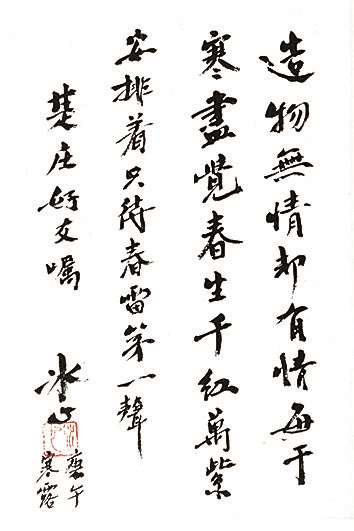 造物無情却有情每于
寒盡覺春生千红萬紫
安排着只待春雷第一聲
楚庄好友嘱
冰心
庚午
寒露